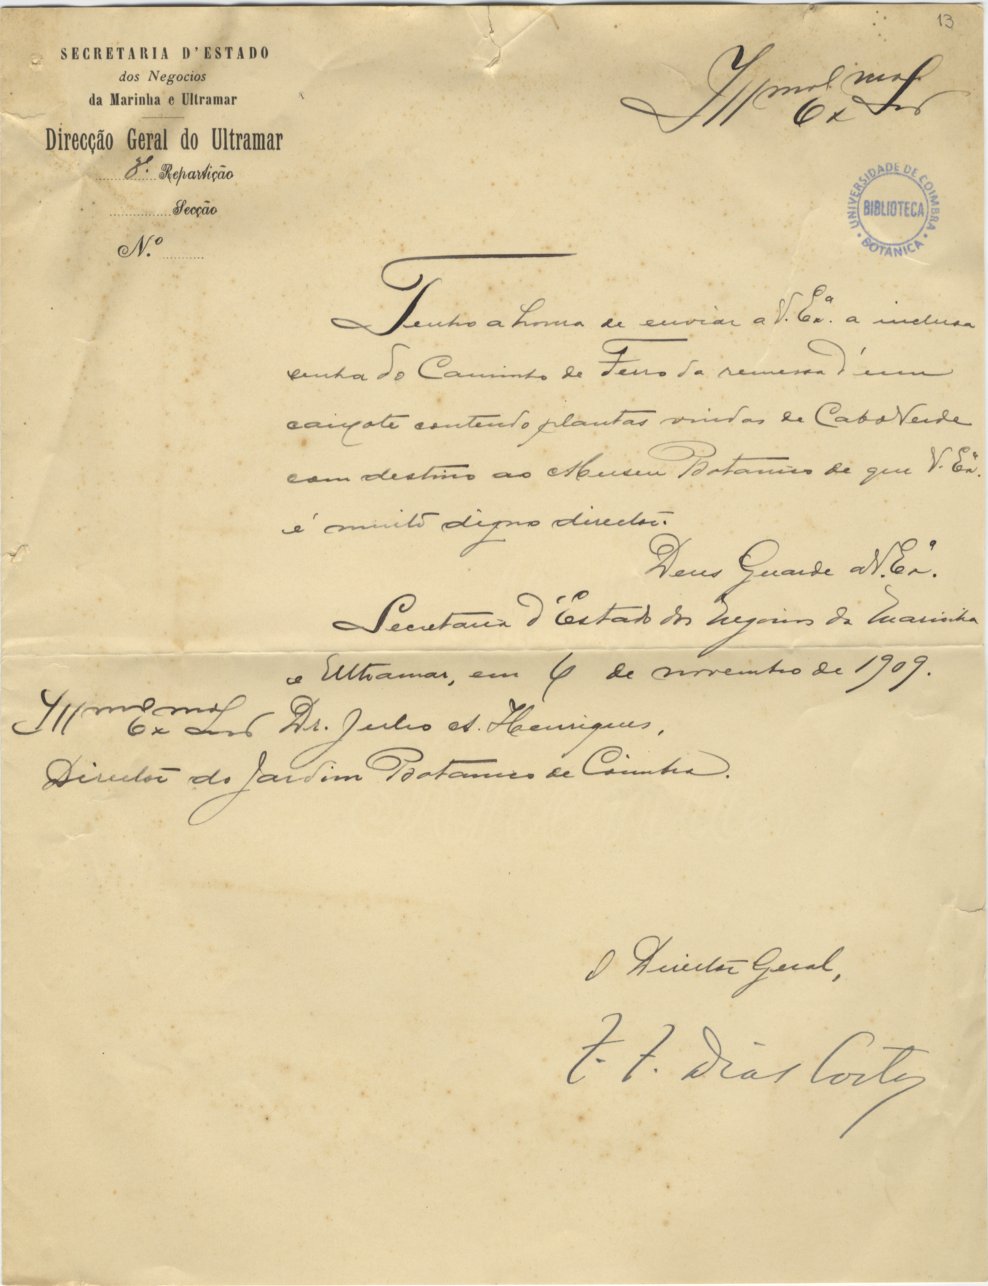 13
SECRETARIA D'ESTADO
dos Negocios
da Marinha e Ultramar
Direcção Geral do Ultramar
Repartição
Secção
N.º
Illmo Exmo Snr
UNIVERSIDADE DE COIMBRA
BIBLIOTECA
BOTANICA
Tenho a honra de enviar a V. Exª. a inclusa
senha do Caminho de Ferro da remessa d'um
caixote contendo plantas vindas de Cabo Verde
com destino ao Museu Botanico de que V. Exª.
é muito digno director.
Deus Guarde a V. Exª.
Secretaria d'Estado dos Negocios da Marinha
e Ultramar, em 6 de novembro de 1909.
Illmo Exmo Snr Dr. Julio A. Henriques,
Director do Jardim Botanico de Coimbra.
O Director Geral,
F. F. Dias Costa